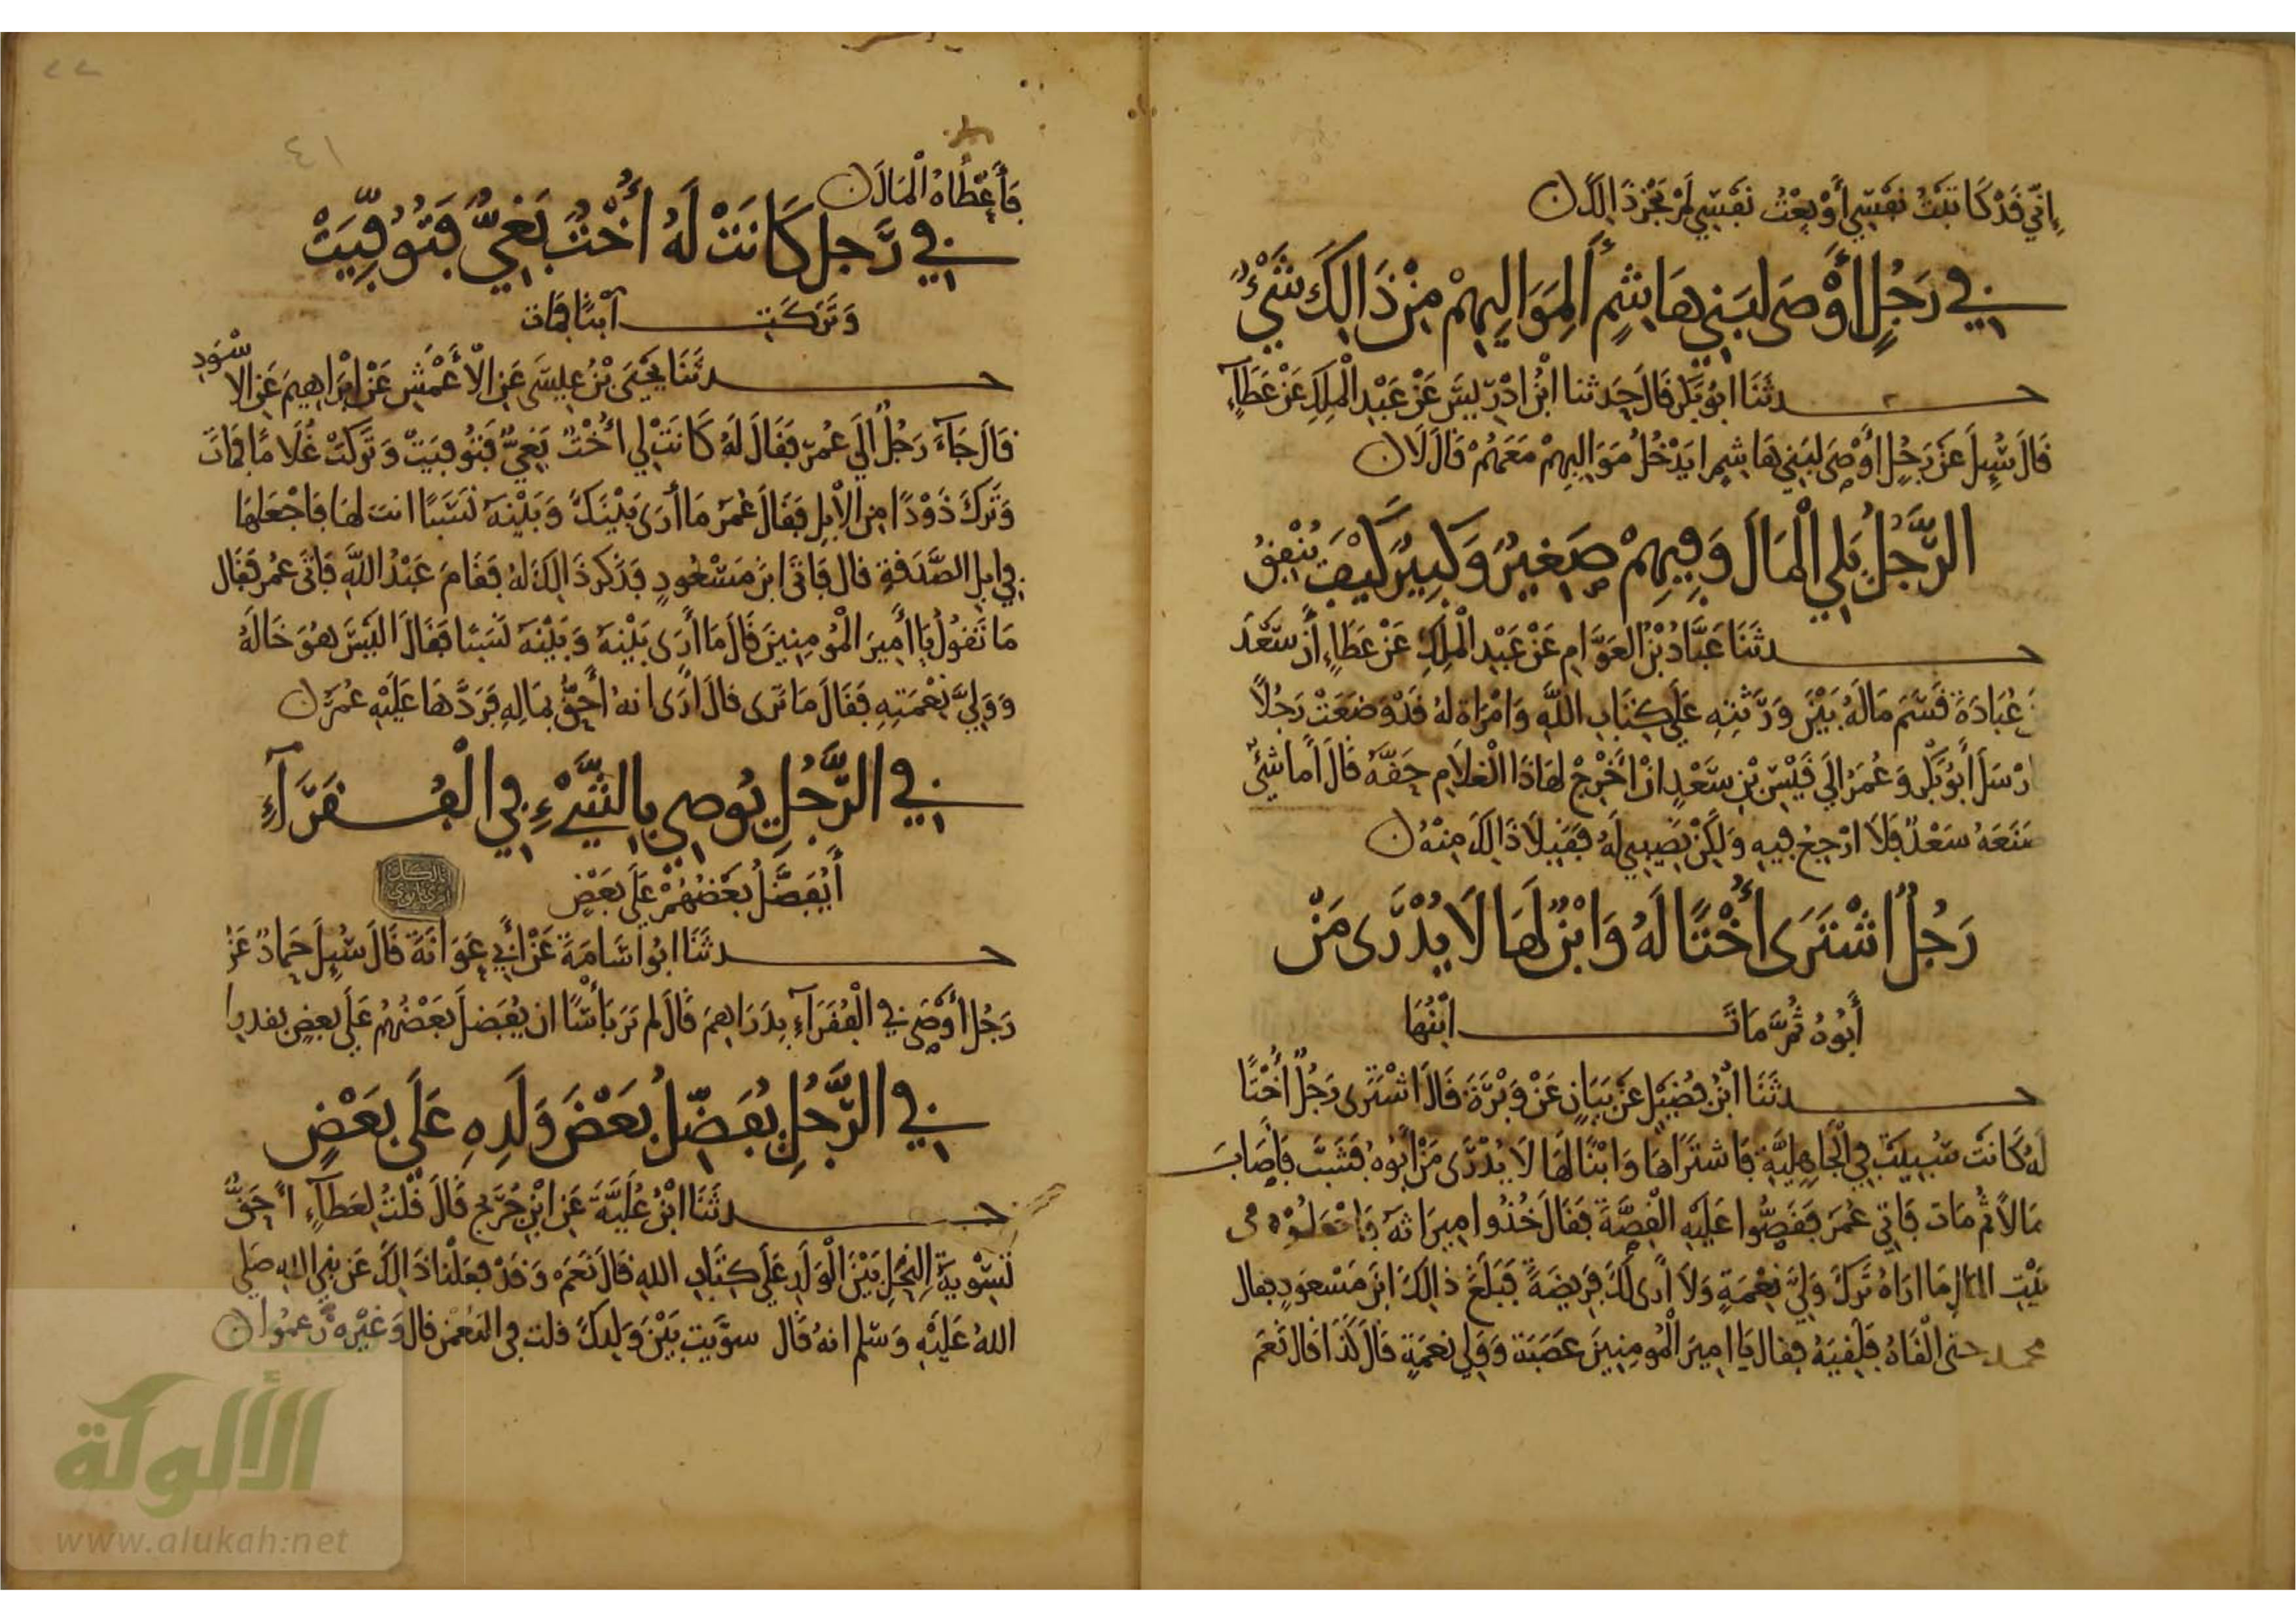 إِنِّي قَدْ كَاتَبْتُ نَفْسِي أَوْ بِعْتُ نَفْسِي لَمْ يَجُزْ ذَالِكَ ن
في رَجُلٍ أَوْصَى لِبَنِي هَاشِمٍ أَلِمَوَالِيهِمْ مِنْ ذَالِكَ شَيْءٌ
حدثَنَا ابُو بَكْر قَالَ حَدثنا ابْنُ ادْرِيسَ عَنْ عَبْدِ الْمَلِكِ عَنْ عَطَآءٍ
قَالَ سُئِلَ عَنْ رَجُلٍ أَوْصَى لِبَنِي هَاشِمٍ ايَدْخُلُ مَوَالِيهِمْ مَعَهُمْ قَالَ لَا ن
الرَّجُلُ يَلِي الْمَالَ وَفِيهِمْ صَغِيرٌ وَكَبِيرٌ كَيْفَ يُنْفِقُ
حدثَنَا عَبَّادُ بْنُ العَوَّامِ عَنْ عَبْدِ الْمَلِكِ عَنْ عَطَاءٍ أَنَّ سَعْدَ
بْنَ عُبَادَةَ قَسَمَ مَالَهُ بَيْنَ وَرَثَتِهِ عَلَى كِتَابِ اللَّهِ وَامْرَاة لَهُ قَدْ وَضَعَتْ رَجُلاً
ارْسَلَ أَبُو بَكْر وَعُمَرُ الَى قَيْسِ بْنِ سَعْدٍ انْ أَخْرِجْ لِهَاذَا الْغُلَامِ حَقَّهُ قَالَ أَما شَيْءٌ
صَنَعَهُ سَعْدٌ فَلَا ارْجِعُ فِيهِ وَلَكِنْ نَصِيبِي لَهُ فَقَبِلَا ذَالِكَ مِنْهُ ن
رَجُلٌ اشْتَرَى أُخْتًا لَهُ وَابْنٌ لَهَا لَا يُدْرَى مَنْ
أَبُوهُ ثُمَّ مَاتَ ابْنُهَا
حدثَنَا ابْنُ فُضَيْلٍ عَنْ بَيَانٍ عَنْ وَبْرَةَ قَالَ اشْتَرَى رَجُلٌ أُخْتًا
لَهُ كَانَتْ سُبِيَتْ فِي الْجَاهِلِيَّةِ فَاشْتَرَاهَا وَابْنًا لَهَا لَا يُدْرَى مَنْ أَبُوهُ فَشَبَّ فَأَصَابَ
مَالاً ثُم مَاتَ فَاتى عُمَرَ فَقَصُّوا عَلَيْهِ الْقِصَّةَ فَقَالَ خُذُوا مِيرَاثَهُ فَاجْعَلُوهُ فى
بَيْتِ المال مَا ارَاهُ تَرَكَ وَلِيَّ نِعْمَةٍ وَلَا أَرَى لَكَ فَرِيضَةً فَبَلَغَ ذالِكَ ابْنَ مَسْعُودٍ فقال
حتى الْقَاهُ فَلَقِيَهُ فقال يَا امِيرَ الْمُومِنِينَ عَصَبَة وَوَلِي نِعْمَةٍ قَالَ كَذَا قَالَ نَعَمْ
فَأَعْطَاهُ الْمَالَ ن
في رَّجل كَانَتْ لَهُ أُخْتٌ بَغِيٌّ فَتُوُفِّيَتْ
وَتَرَكَت ابْنًا فَمَاتَ
حدثَنَا يَحْيَى بْنُ عِيسَى عَنِ الاعْمَشِ عَنْ ابْرَاهِيمَ عَنِ الاسْوَدِ
قَالَ جَآءَ رَجُلٌ الَى عُمَرَ فَقَالَ لَهُ كَانَتْ لِي أُخْتٌ بَغِيٌّ فَتُوُفِيَتْ وَتَرَكَتْ غُلَامًا فَمَاتَ
وَتَرَكَ ذَوْدًا مِن الْابِلِ فَقَالَ عُمَرُ مَا أَرَى بَيْنَكَ وَبَيْنَهُ نَسَبًا ائت بهَا فَاجْعَلْهَا
فِي ابِلِ الصَّدَقَةِ قال فَاتَى ابْنَ مَسْعُودٍ فَذَكَرَ ذَالِكَ لَهُ فَقَامَ عَبْدُ اللَّهِ فَاتَى عُمَر فَقَال
مَا تَقُولُ يَا أَمِيرَ الْمُومِنِينَ قَالَ مَا أَرَى بَيْنَهُ وَبَيْنَهُ نَسَبًا فَقَالَ الَيْسَ هُوَ خَالَهُ
وَوَلِيَّ نِعْمَتِهِ فَقَالَ مَا تَرَى قَالَ أَرَى انهُ أَحَقُّ بِمَالِهِ فَرَدَّهَا عَلَيْهِ عُمَرُ ن
في الرَّجُلِ يُوصِي بِالشَّيْءِ فِي الْفُقَرَآءِ
أَيُفَضَّلُ بَعْضُهُمْ عَلَى بَعْضٍ
حدثَنَا ابُو اسَامَةَ عَنْ أَبِي عَوَانَةَ قَالَ سُئِلَ حَمادٌ عَنْ
رَجُل أَوْصَى في الْفُقَرَآءِ بِدَرَاهِمَ قَالَ لم يَرَ بَأْسًا ان يُفَضلَ بَعْضُهُمْ عَلَى بعضٍ بقدر
في الرَّجُلِ يُفَضِّلُ بَعْضَ وَلَدِهِ عَلَى بَعْضٍ
حدثَنَا ابْنُ عُلَيَّةَ عَنِ ابْنِ جُرَيْجٍ قَالَ قُلْتُ لِعَطَآءٍ أَحَقٌّ
تَسْوِيَةُ النِّحَلِ بَيْنَ الْوَلَدِ عَلَى كِتَابِ اللهِ قَالَ نَعَمْ وَقَدْ بَلَغْنَا ذَالِكَ عَن نبي الله صَلى
اللهُ عَلَيْهِ وَسَلم انهُ قَال سوَّيت بَيْنَ وَلَدِكَ قلت في النعْمن قال وَغَيْرِه زَعَمُوا ن
٤١
الألوكة
www.alukah.net